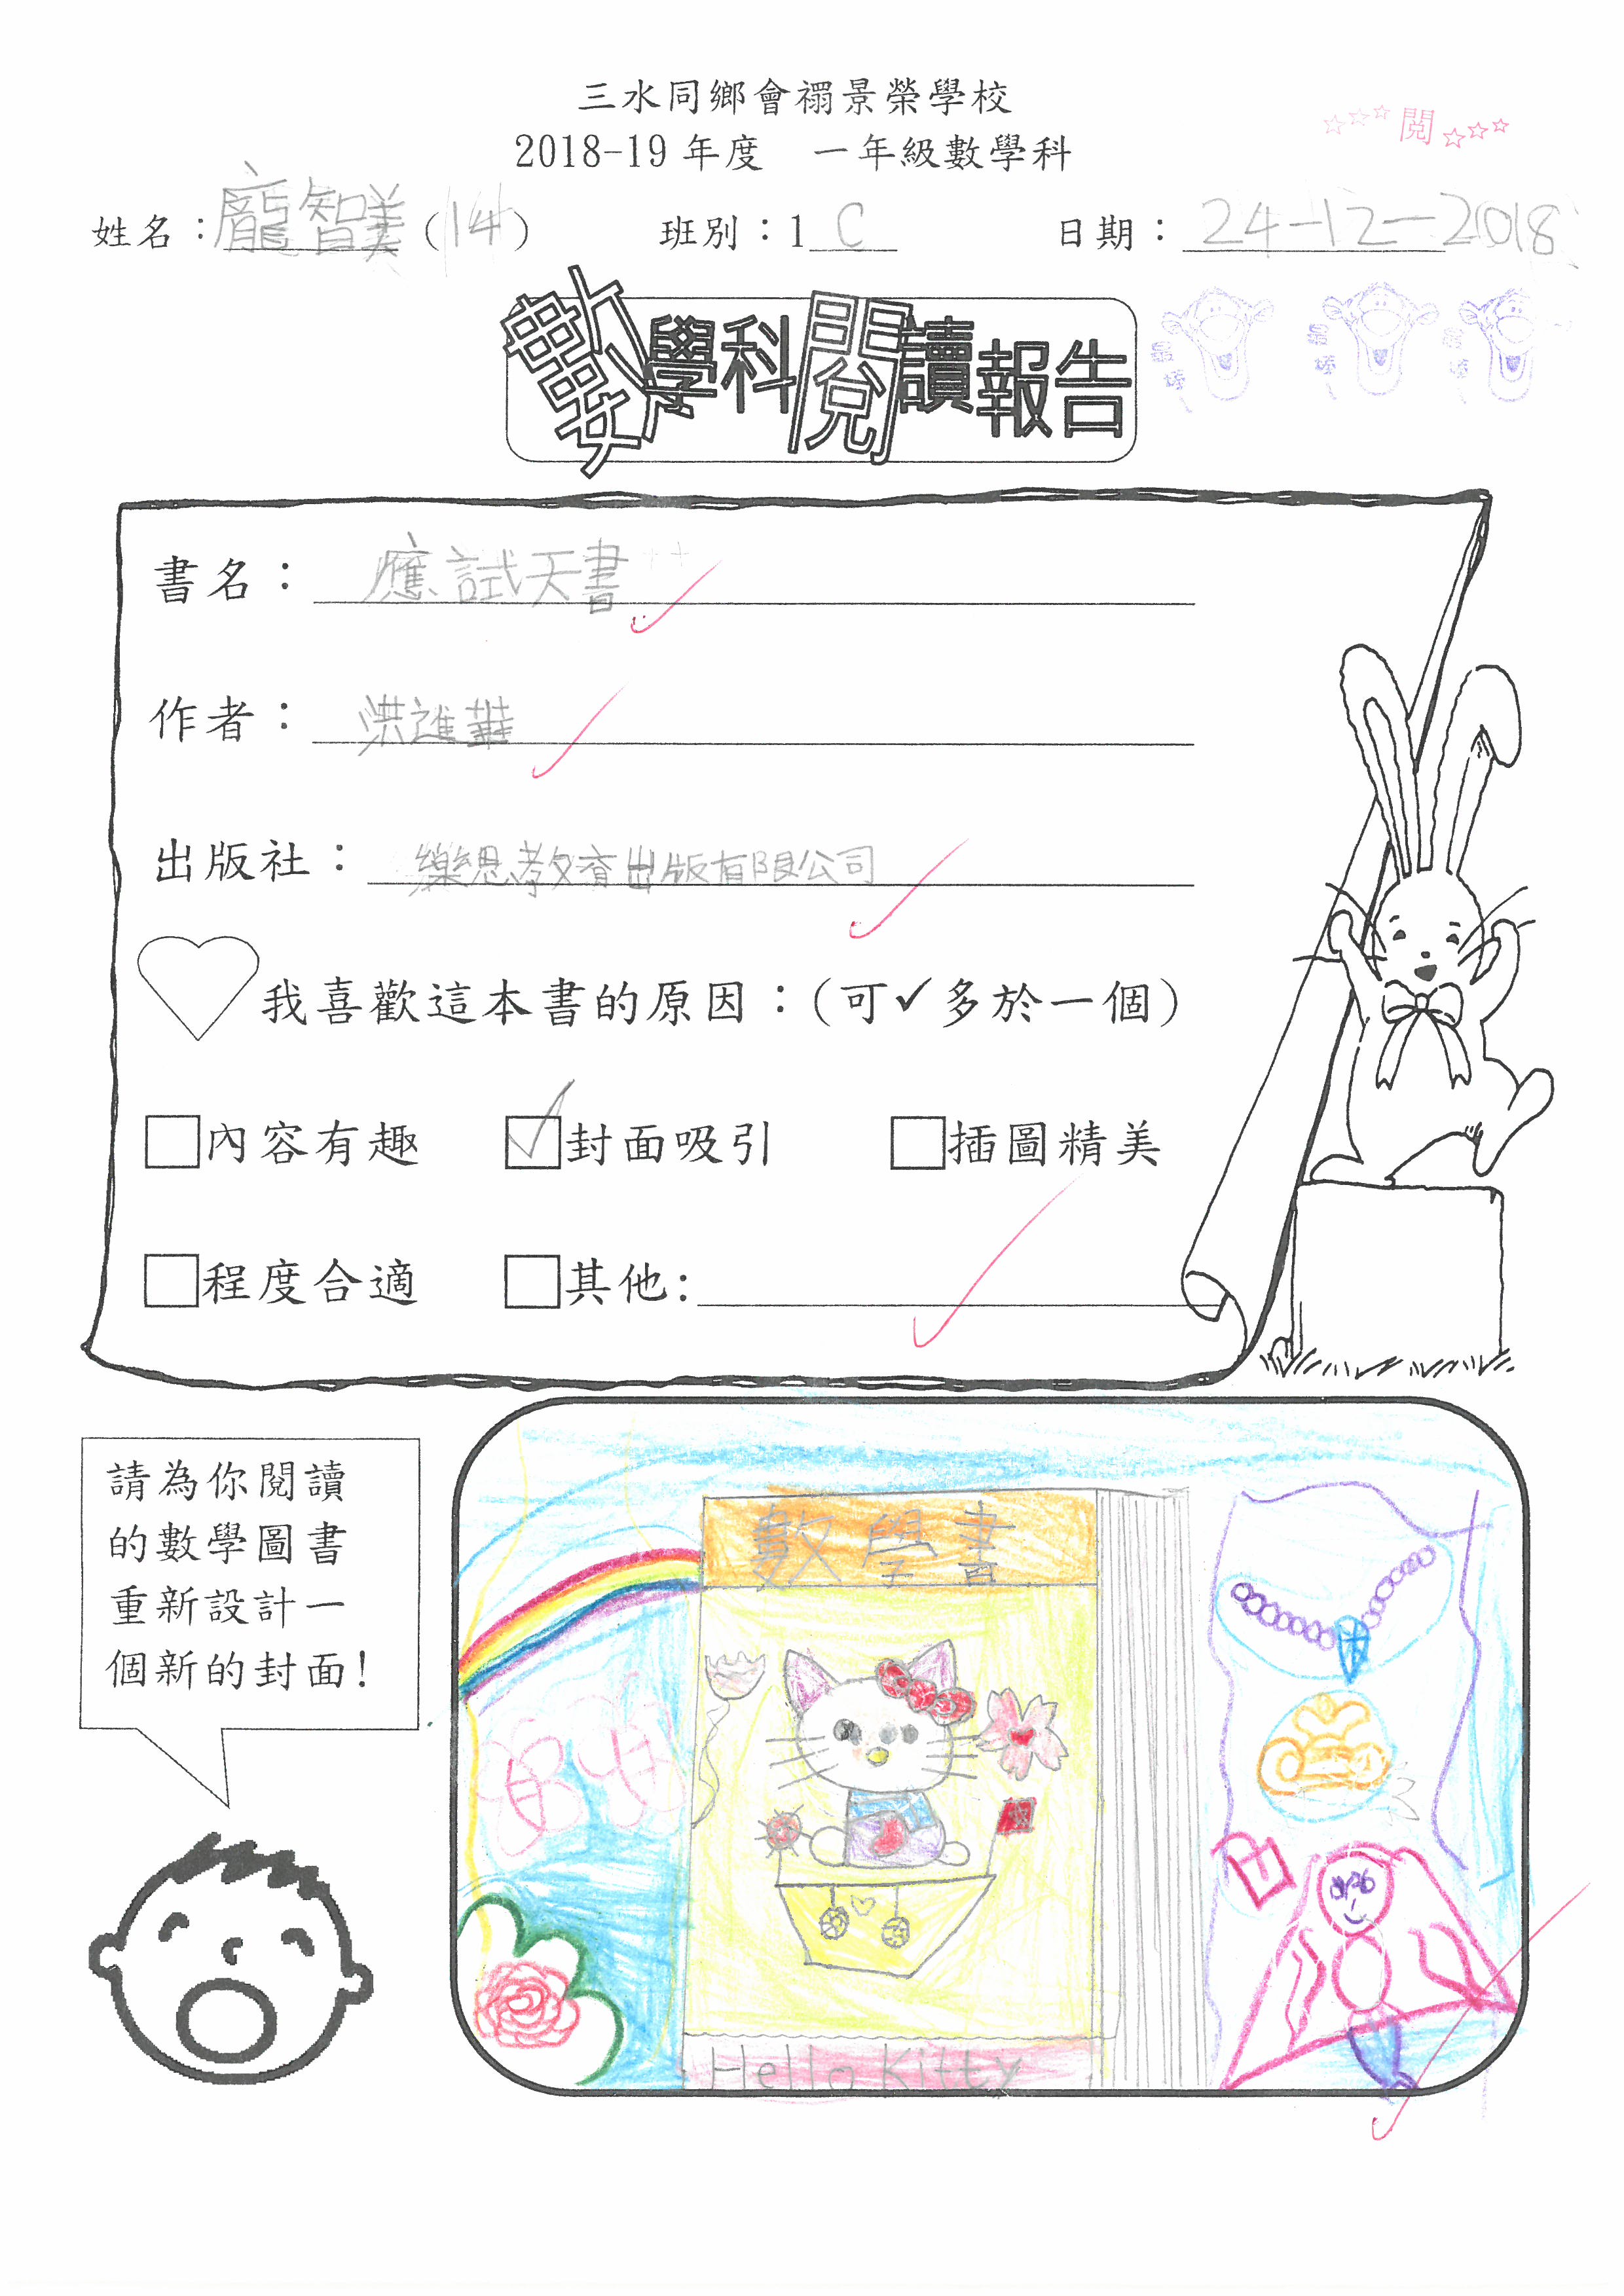 三水同鄉會禤景榮學校
2018-19 年度　一年級數學科
閱
姓名：龐智美（14）　班別：1 C　日期：24-12-2018
數學科閱讀報告
書名：應試天書
作者：洪進華
出版社：樂思教育出版有限公司
我喜歡這本書的原因：(可✓多於一個)
□內容有趣　☑封面吸引　□插圖精美
□程度合適　□其他:
請為你閱讀
的數學圖書
重新設計一
個新的封面!
數學書
Hello Kitty